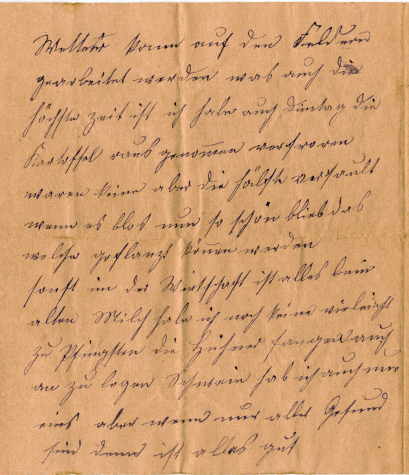 Wetter kann auf den Feldern
gearbeitet werden was auch die
höchste zeit ist ich habe auch Dinstag die
Kartoffel raus genommen verfroren
waren keine aber die hälfte verfault
wenn es blos nun so schön blieb das
welche geflanzt können werden
sonst in der Wirtschaft ist alles beim
alten Milch habe ich noch keine vieleicht
zu Pfingsten die Hühner fangen auch
an zu legen Schwein hab ich auch nur
eins aber wenn nur alles Gesund
sind dann ist alles gut